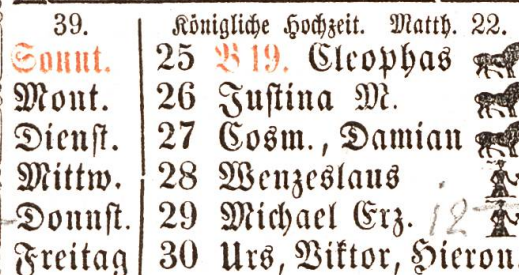 39. Königliche Hochzeit. Matth. 22.
Sonnt. 25 B 19. Cleophas
Mont. 26 Justina M.
Dienst. 27 Cosm., Damian
Mittw. 28 Wenzeslaus
Donnst. 29 Michael Erz. 12
Freitag 30 Urs, Viktor, Hieron